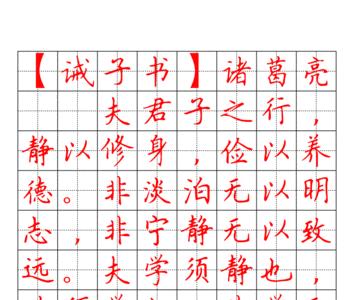 【诫子书】诸葛亮
夫君子之行，
静以修身，俭以养
德。非淡泊无以明
志，非宁静无以致
远。夫学须静也，